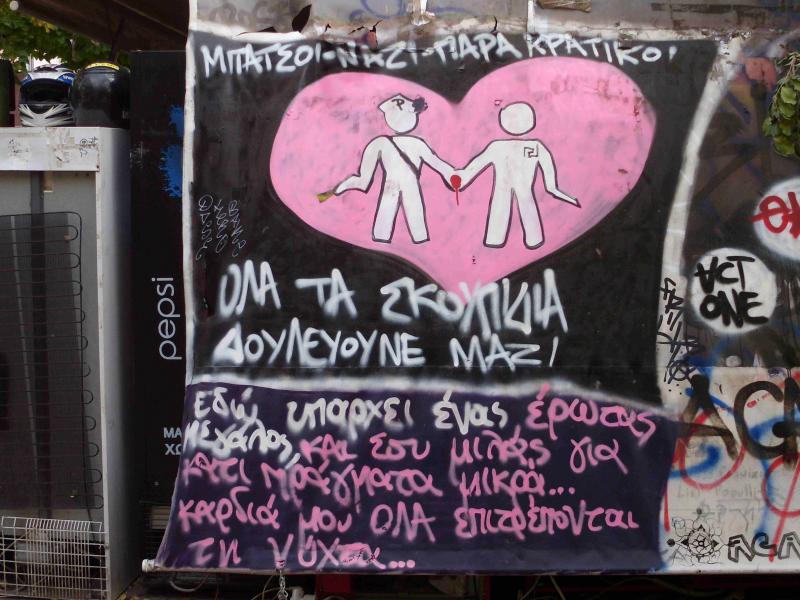 ΜΠΑΤΣΟΙ-ΝΑΖΙ-ΠΑΡΑΚΡΑΤΙΚΟΙ
P
ΟΛΑ ΤΑ ΣΚΟΥΠΙΔΙΑ
ΔΟΥΛΕΥΟΥΝΕ ΜΑΖΙ
Εδώ υπαρχει ένας έρωτας
μεγάλος, και εσυ μιλάς για
κάτι πράγματα μικρά...
καρδιά μου ΟΛΑ επιτρέπονται
τη νύχτα...
pepsi
ACT
ONE